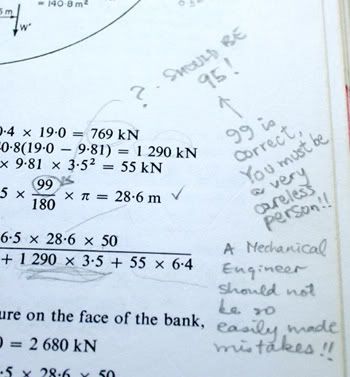 5 m
= 140·8 m²
W
? - SHOULD BE
95!
·4 × 19·0 = 769 kN
0·8(19·0 − 9·81) = 1 290 kN
× 9·81 × 3·5² = 55 kN
5 × 99/180 × π = 28·6 m ✓
99 is
correct,
You must be
a very
careless
person!!
6·5 × 28·6 × 50
+ 1 290 × 3·5 + 55 × 6·4
A Mechanical
Engineer
should not
be so
easily made
mistakes!!
ure on the face of the bank,
) = 2 680 kN
·5 × 28·6 × 50